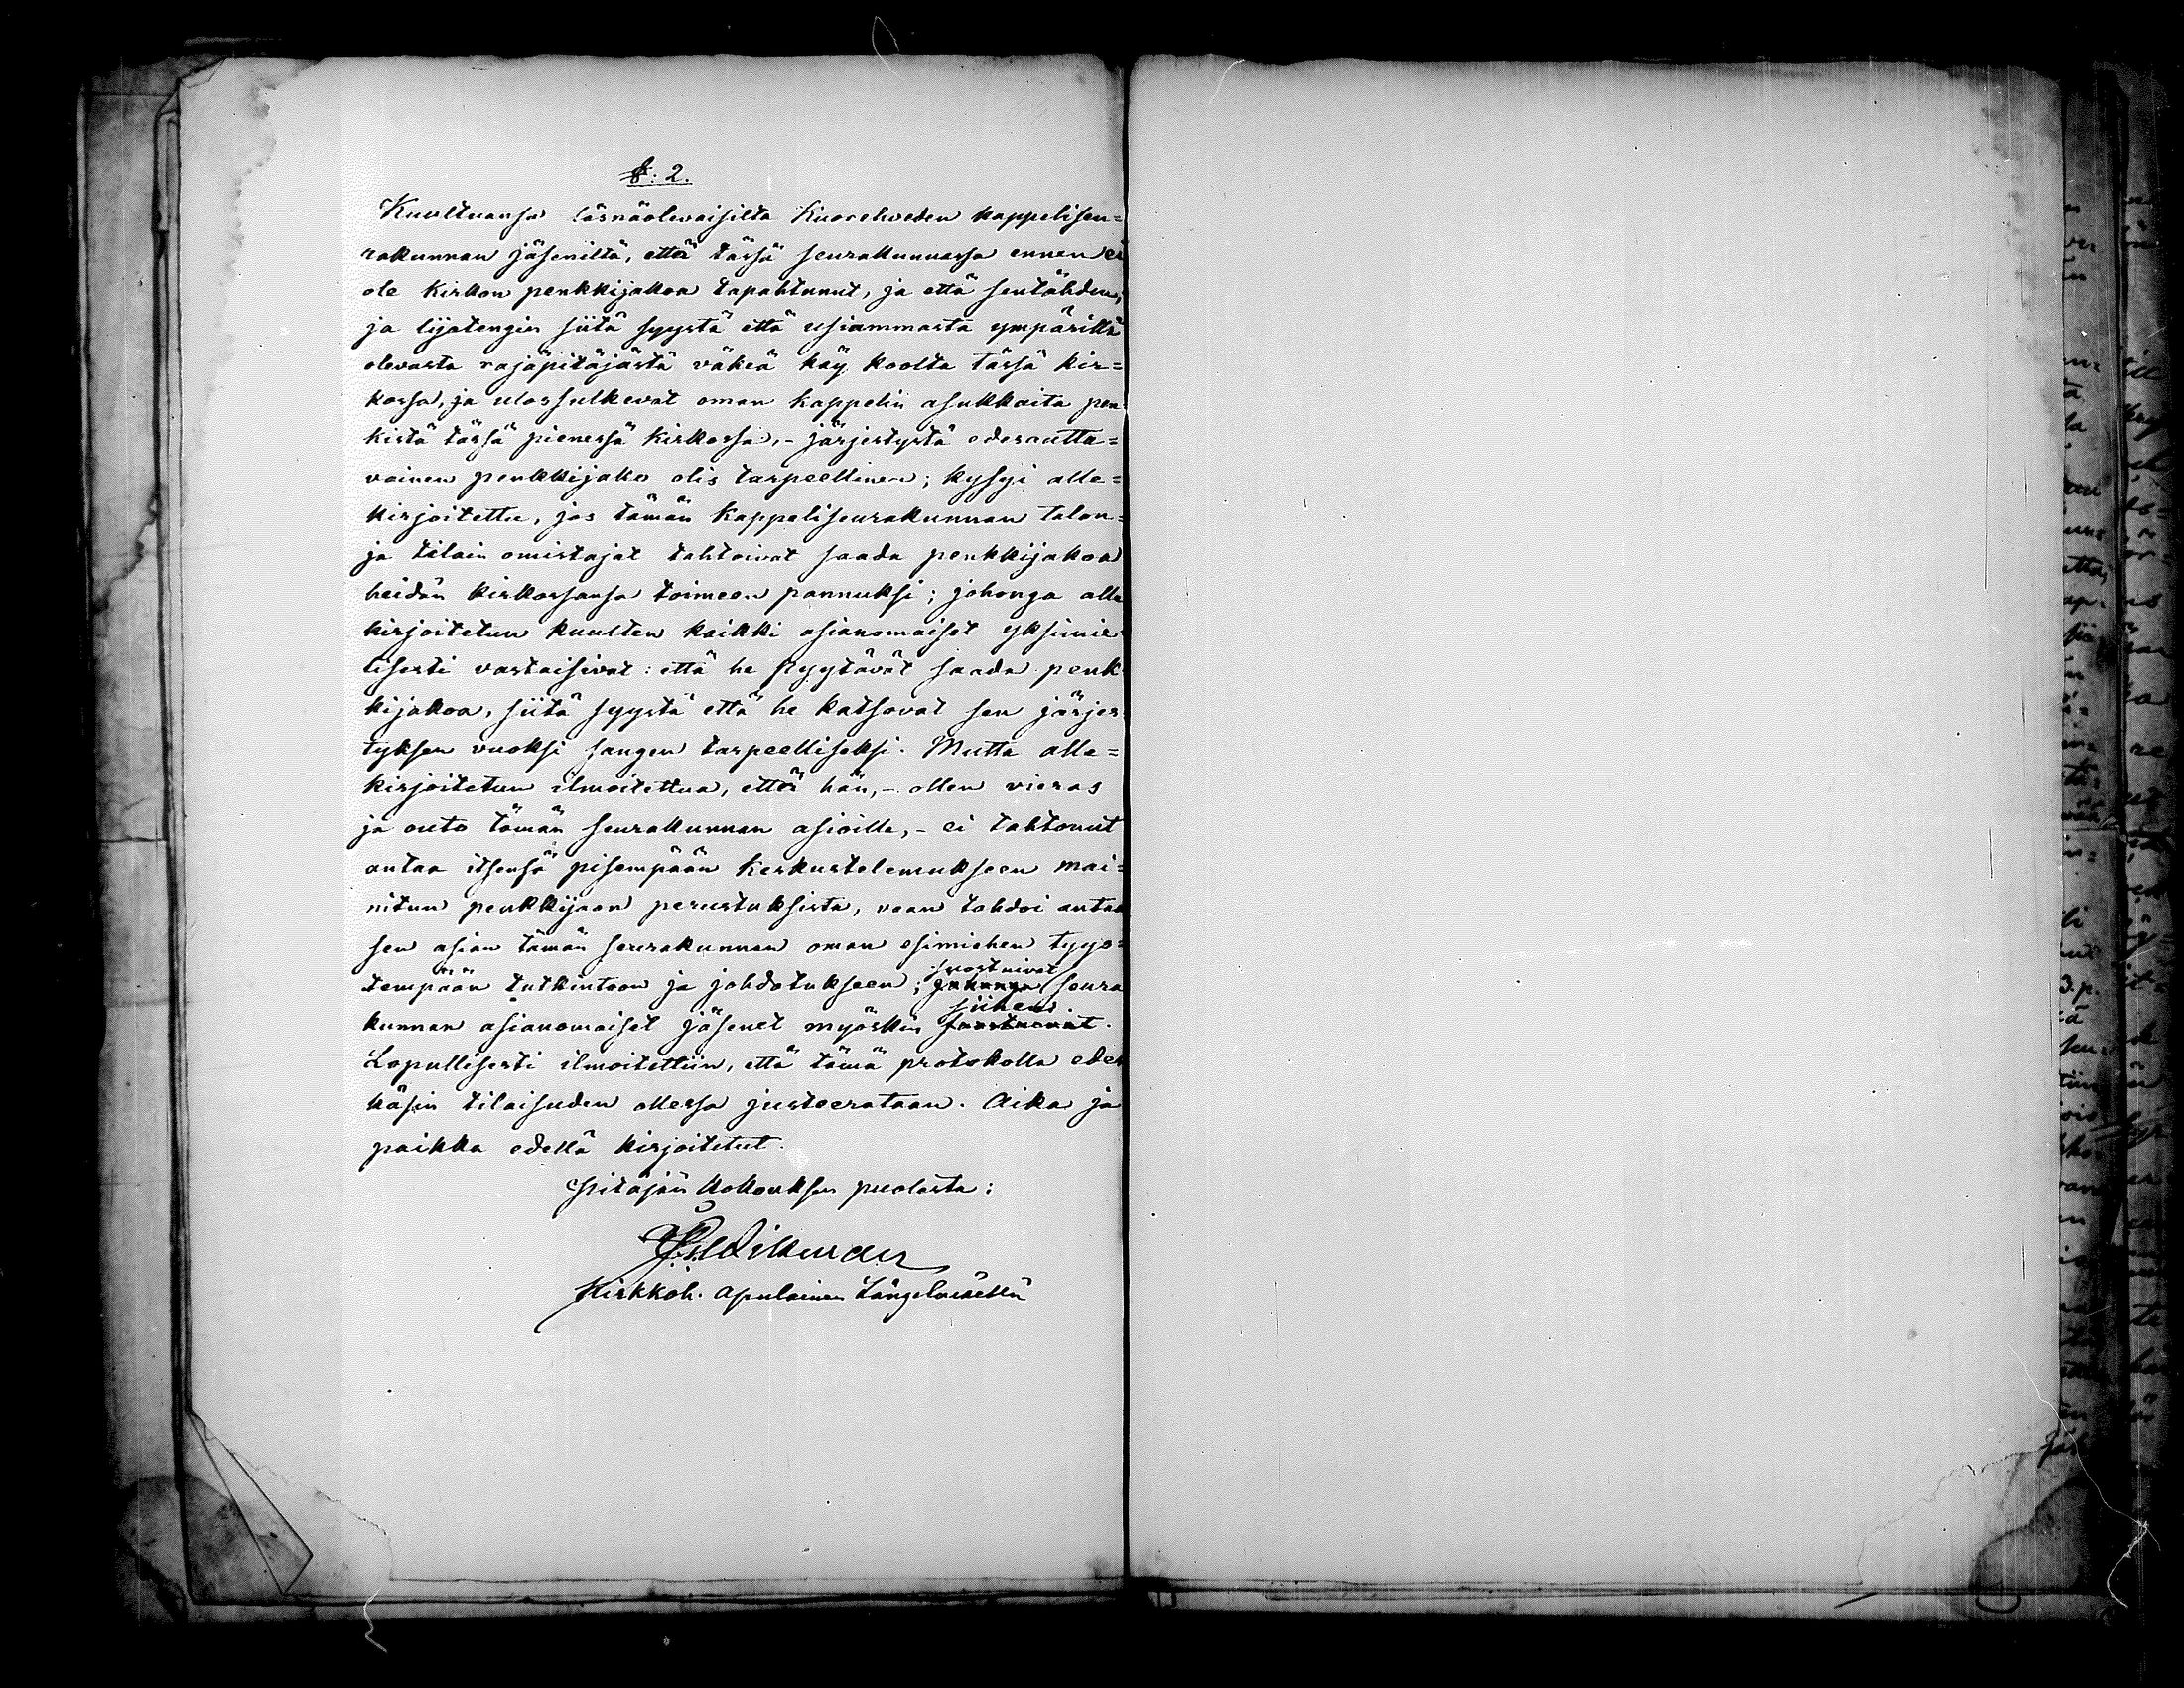 §: 2.
Kuultuansa läsnäolevaisilta Kuoreheveden kappelisen=
rakunnan jäseniltä, että tässä seurakunnassa ennen ei
ole kirkon penkkijakoa tapahtunut, ja että sentähden,
ja lijatengin siitä syystä että usiammasta ympärillä
olevasta rajapitäjästä väkeä käy koolta tässä kir=
kossa, ja ulossulkevat oman kappelin asukkaita pen=
kistä tässä pienessä kirkossa, - järjestystä edesautta=
vainen penkkijako olis tarpeellinen; kysyi alle=
kirjoitettu, jos tämän kappeliseurakunnan talon=
ja tilain omistajat tahtoivat saada penkkijakoa
heidän kirkossansa toimeen pannuksi; johonga alle
kirjoitetun kuulten kaikki asianomaiset yksimie
lisesti vastaisivat: että he pyytävät saada penk
kijakoa, siitä syystä että he katsovat sen järjes
tyksen vuoksi sangen tarpeelliseksi. Mutta alle=
kirjoitetun ilmoitettua, että hän, - ollen vieras
ja outo tämän seurakunnan asioille, - ei tahtonut
antaa itsensä pisempään keskustelemukseen mai=
nitun penkkijaon perustuksista, vaan tahdoi antaa
sen asian tämän seurakunnan oman esimiehen tyyo=
tempään tutkintoon ja johdatukseen; johonga seura
suostuivat
kunnan asianomaiset jäsenet myöskin suostuivat.
siihen.
Lopullisesti ilmoitettiin, että tämä protokolla edes
käsin tilaisuden ollessa justeerataan. Aika ja
paikka edellä kirjoitetut.
Pitäjän kokouksen puolasta:
Wikman
Kirkkoh. apulainen Längelmäellä